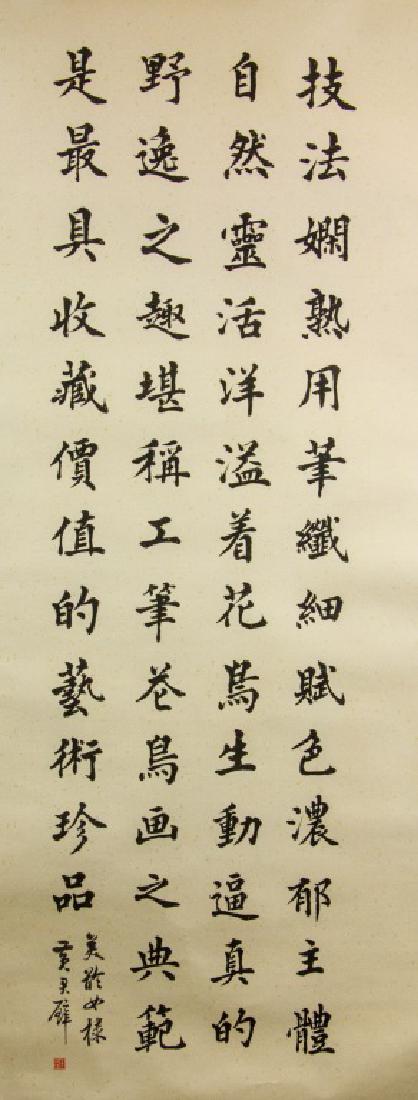 技法嫻熟用筆纖細賦色濃郁主體
自然靈活洋溢着花鳥生動逼真的
野逸之趣堪稱工筆花鳥画之典範
是最具收藏價值的藝術珍品
美齡女棣
黃君璧